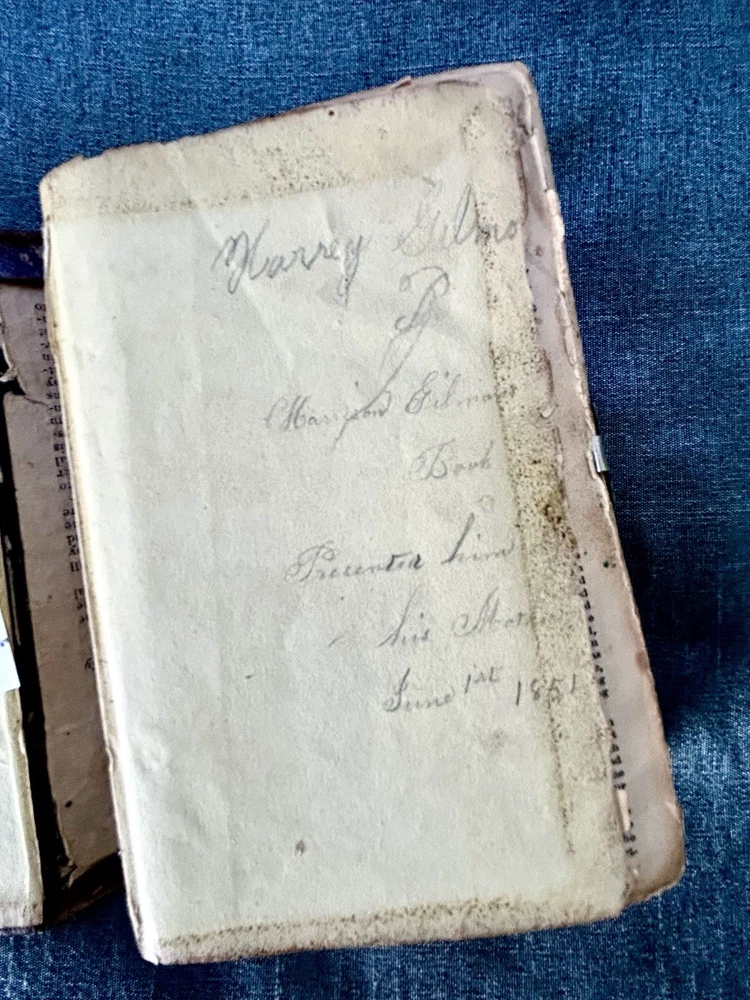 Harrey Gilmo
Harrison Gilmo
Book
Presented him
his Mothe
June 1st 1851